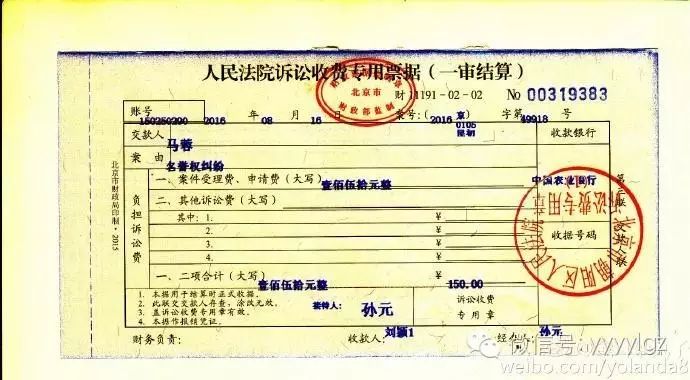 人民法院诉讼收费专用票据（一审结算）
北京市
财政部监制
财 11191-02-02 No 00319383
账号
150250299 2016 年 08 月 16 日 案号:(2016 京0105民初 字第 49918 号
交款人 马蓉 收款银行
案由 名誉权纠纷
一、案件受理费、申请费（大写） 壹佰伍拾元整 中国农业银行
负担诉讼费
二、其他诉讼费（大写） ¥
其中：1. ¥
2. ¥
3. ¥
4. ¥
收据号码
一、二项合计（大写） 壹佰伍拾元整 ¥ 150.00
1．本据用于结算时正式收据。
2．此联交交款人存查，涂改无效。
3．盖诉讼收费专用章有效。
4．本据作报核凭证。
接待人： 孙元
诉讼收费
专用章
财务负责： 收款人： 刘颖1 经办人： 孙元
北京市财政局印制·2015
北京市朝阳区人民法院
诉讼费专用章
微信号: yyyylgz
weibo.com/yolanda8